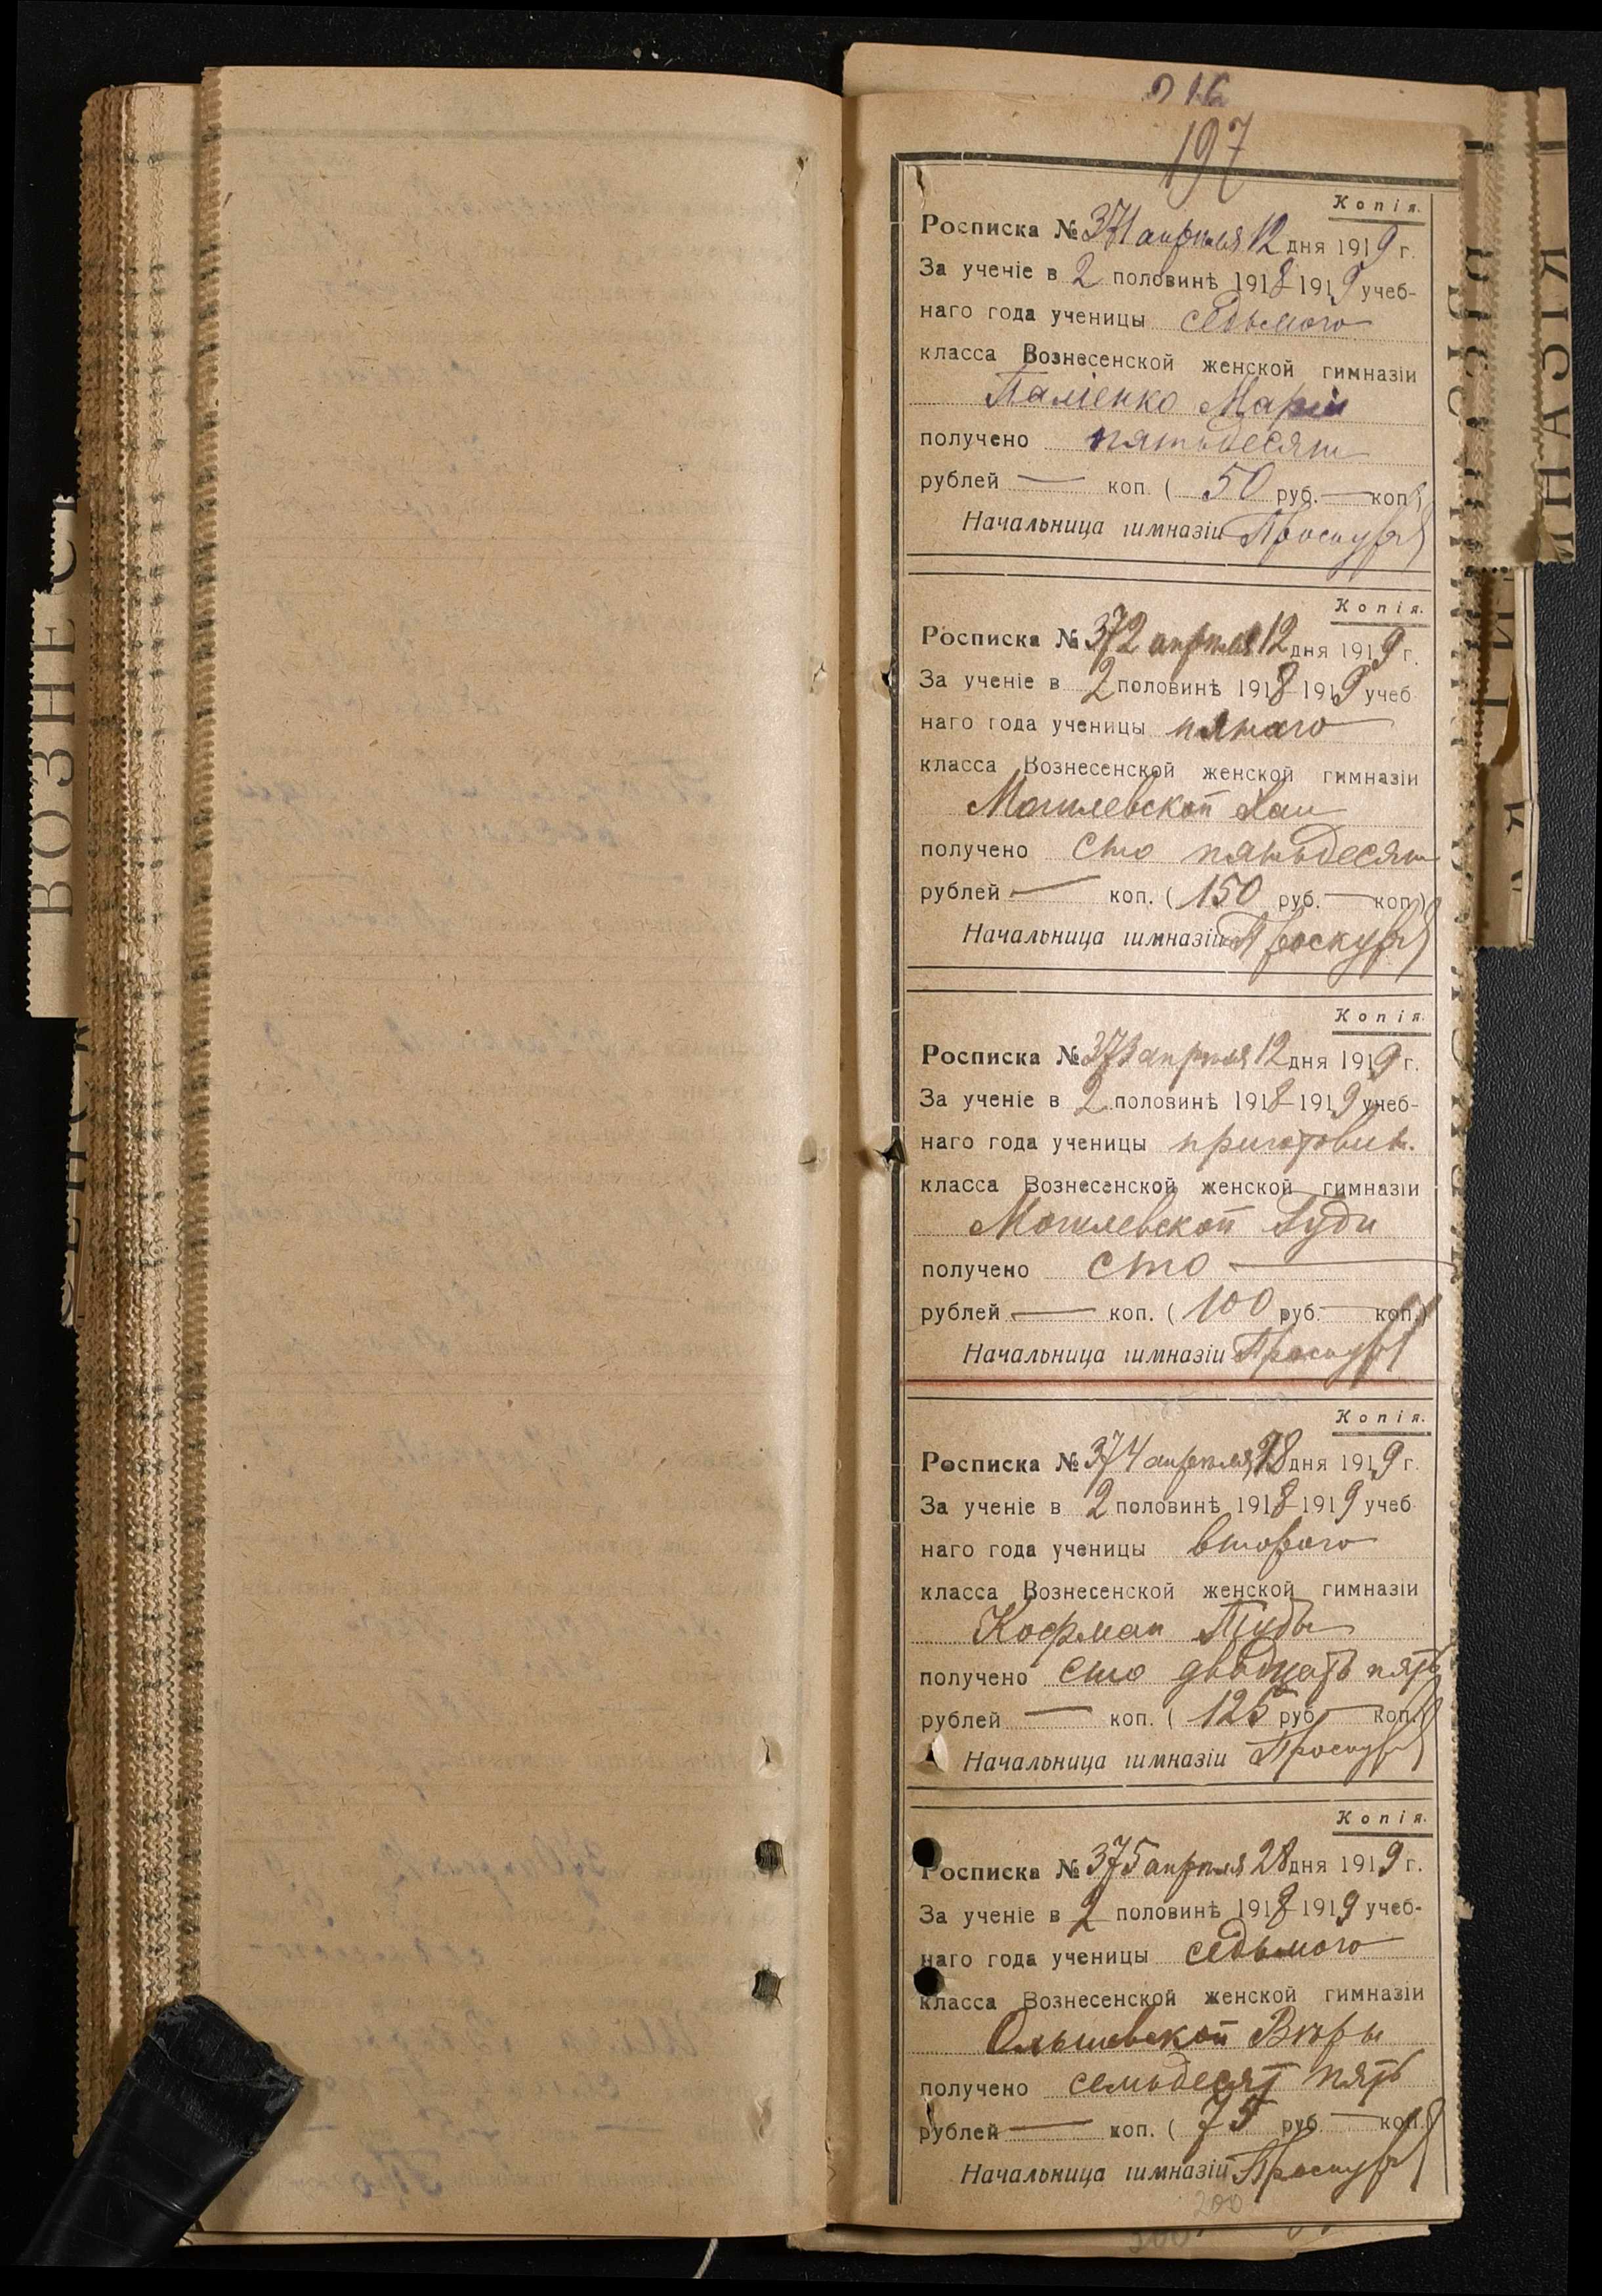 197
Копія.
Росписка № 371 апрѣля 12 дня 1919 г.
За ученіе в 2 половинѣ 1918-1919 учеб-
наго года ученицы седьмого
класса Вознесенской женской гимназіи
Маріи
получено пятьдесят
рублей — коп. ( 50 руб. — коп.)
Начальница гимназіи
Копія.
Росписка № 372 апрѣля 12 дня 1919 г.
За ученіе в 2 половинѣ 1918-1919 учеб
наго года ученицы пятаго
класса Вознесенской женской гимназіи
Могилевской Хаи
получено сто пятьдесят
рублей — коп. ( 150 руб. — коп.)
Начальница гимназіи
Копія.
Росписка № 373 апрѣля 12 дня 1919 г.
За ученіе в 2 половинѣ 1918-1919 учеб-
наго года ученицы приготовит.
класса Вознесенской женской гимназіи
Могилевской
получено сто —
рублей — коп. ( 100 руб. — коп.)
Начальница гимназіи
Копія.
Росписка № 374 апрѣля 28 дня 1919 г.
За ученіе в 2 половинѣ 1918-1919 учеб
наго года ученицы второго
класса Вознесенской женской гимназіи
Кофман
получено сто двадцать пять
рублей — коп. ( 125 руб. — коп.)
Начальница гимназіи
Копія.
Росписка № 375 апрѣля 28 дня 1919 г.
За ученіе в 2 половинѣ 1918-1919 учеб-
наго года ученицы седьмого
класса Вознесенской женской гимназіи
Ольшевской Вѣры
получено семьдесят пять
рублей — коп. ( 75 руб. — коп.)
Начальница гимназіи
200